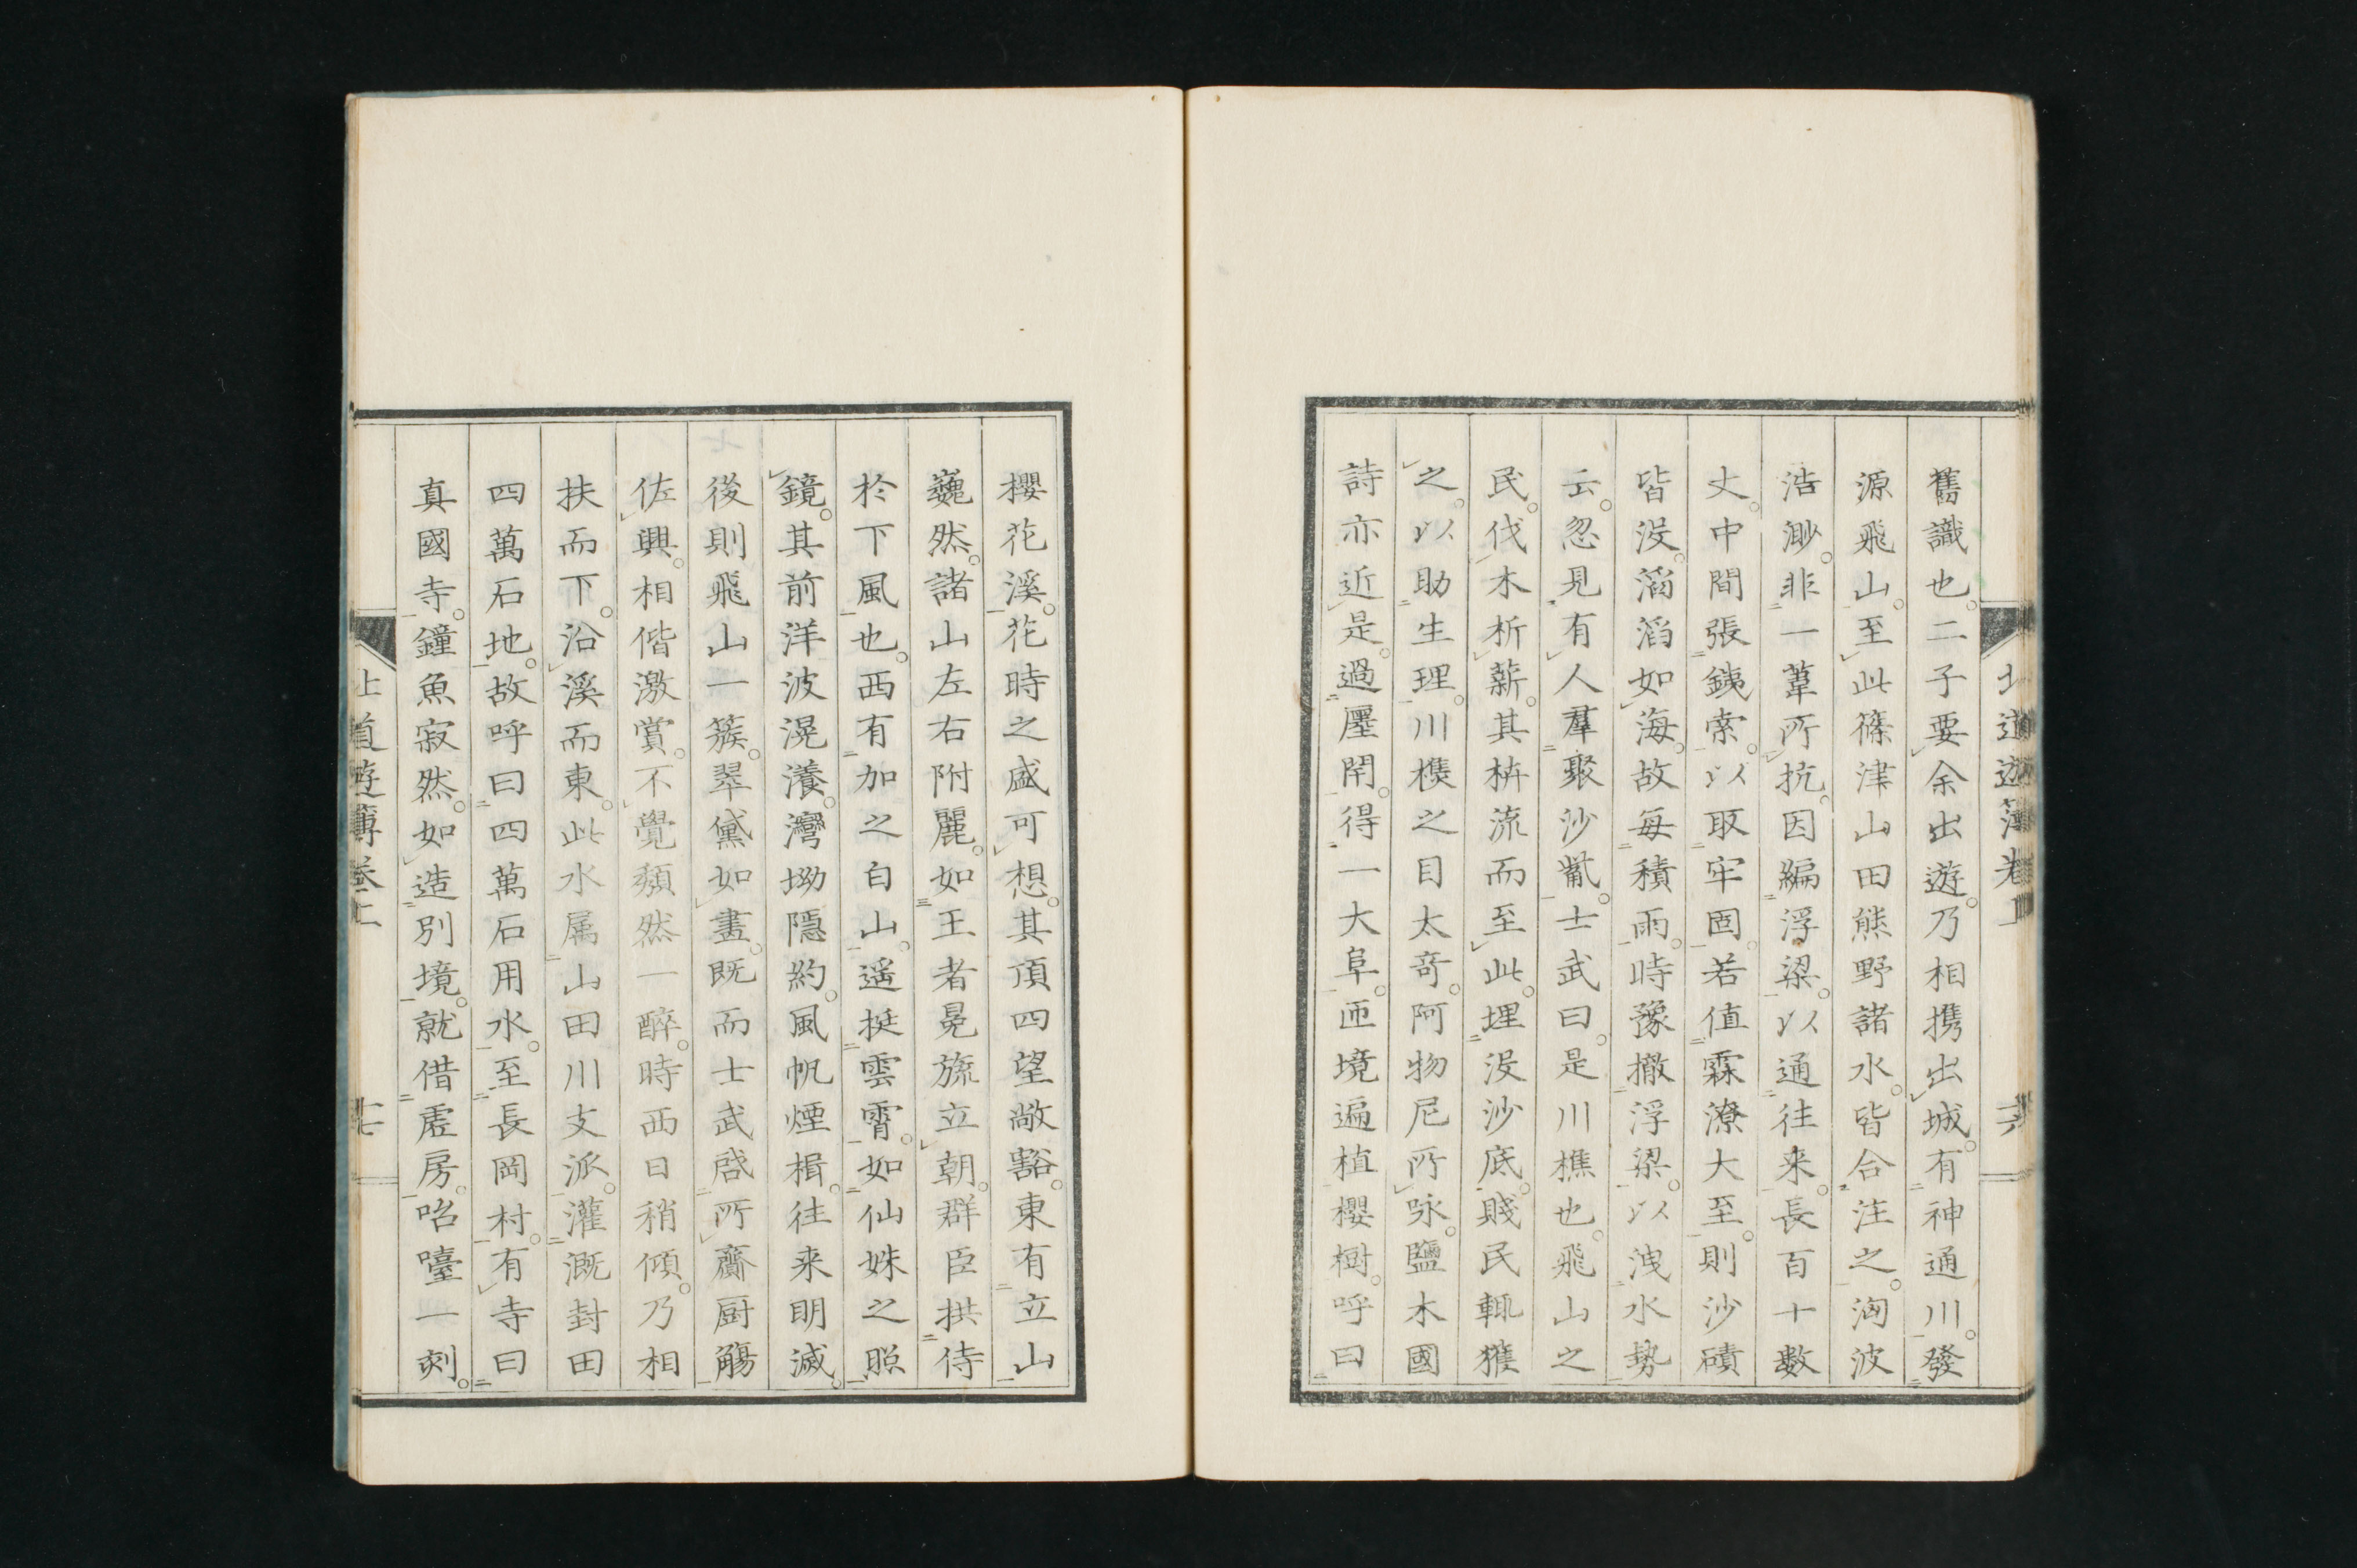 舊識也。二子要余出遊。乃相携出城。有神通川。發
源飛山。至此篠津山田熊野諸水。皆合注之。洶波
浩渺。非一葦所抗。因編浮梁。以通往来。長百十數
丈。中間張鉄索。以取牢固。若值霖潦大至。則沙磧
皆没。滔滔如海。故毎積雨。時豫撤浮梁。以洩水勢
云。忽見有人羣聚沙觜。士武曰。是川樵也。飛山之
民。伐木析薪。其枿流而至此。埋没沙底。賤民輒獲
之。以助生理。川樵之目太奇。阿物尼所咏。鹽木國
詩亦近是。過廛閈。得一大阜。匝境遍植櫻樹。呼曰
北道遊簿卷上
六
櫻花溪。花時之盛可想。其頂四望敞豁。東有立山
巍然。諸山左右附麗。如王者冕旒立朝。群臣拱侍
於下風也。西有加之白山。遥挺雲霄。如仙姝之照
鏡。其前洋波滉瀁。灣坳隱約。風帆煙楫。往来明滅。
後則飛山一簇。翠黛如畫。既而士武啓所齎厨觴
佐興。相偕激賞。不覺頽然一醉。時西日稍傾。乃相
扶而下。沿溪而東。此水属山田川支派。灌溉封田
四萬石地。故呼曰四萬石用水。至長岡村。有寺曰
真國寺。鐘魚寂然。如造別境。就借虚房。咍嚔一刻。
北道遊簿卷上
七